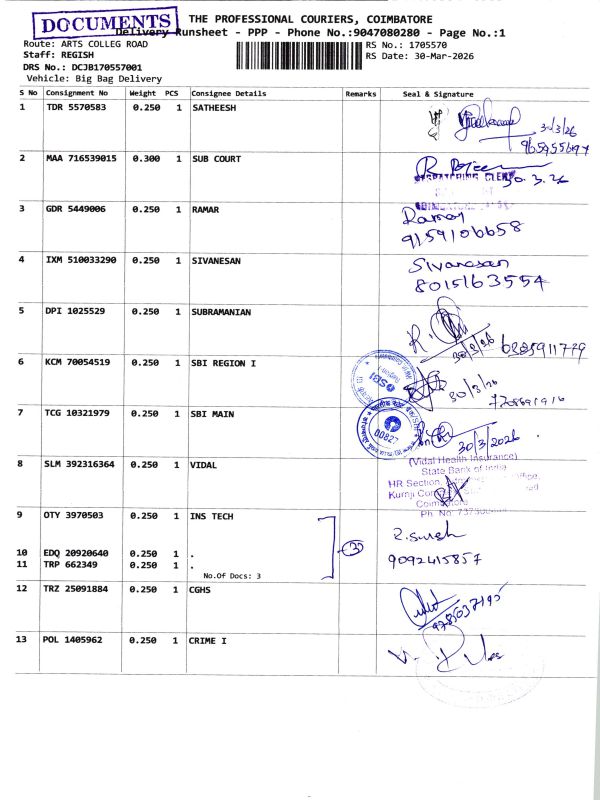 DOCUMENTS
THE PROFESSIONAL COURIERS, COIMBATORE
Delivery Runsheet - PPP - Phone No.:9047080280 - Page No.:1
Route: ARTS COLLEG ROAD
RS No.: 1705570
Staff: REGISH
RS Date: 30-Mar-2026
DRS No.: DCJB170557001
Vehicle: Big Bag Delivery
S No Consignment No Weight PCS Consignee Details Remarks Seal & Signature
1 TDR 5570583 0.250 1 SATHEESH
30/3/26
2 MAA 716539015 0.300 1 SUB COURT
30.3.26
3 GDR 5449006 0.250 1 RAMAR
Ramar
9159106658
4 IXM 510033290 0.250 1 SIVANESAN
Sivanesan
8015163554
5 DPI 1025529 0.250 1 SUBRAMANIAN
30/3/26 6385911779
6 KCM 70054519 0.250 1 SBI REGION I
SBI
30/3/26
7 TCG 10321979 0.250 1 SBI MAIN
00827
30/3/2026
8 SLM 392316364 0.250 1 VIDAL
(Vidal Health Insurance)
State Bank of India
HR Section,
9 OTY 3970503 0.250 1 INS TECH
R. Suresh
3
10 EDQ 20920640 0.250 1 .
9092415857
11 TRP 662349 0.250 1 .
No.Of Docs: 3
12 TRZ 25091884 0.250 1 CGHS
13 POL 1405962 0.250 1 CRIME I